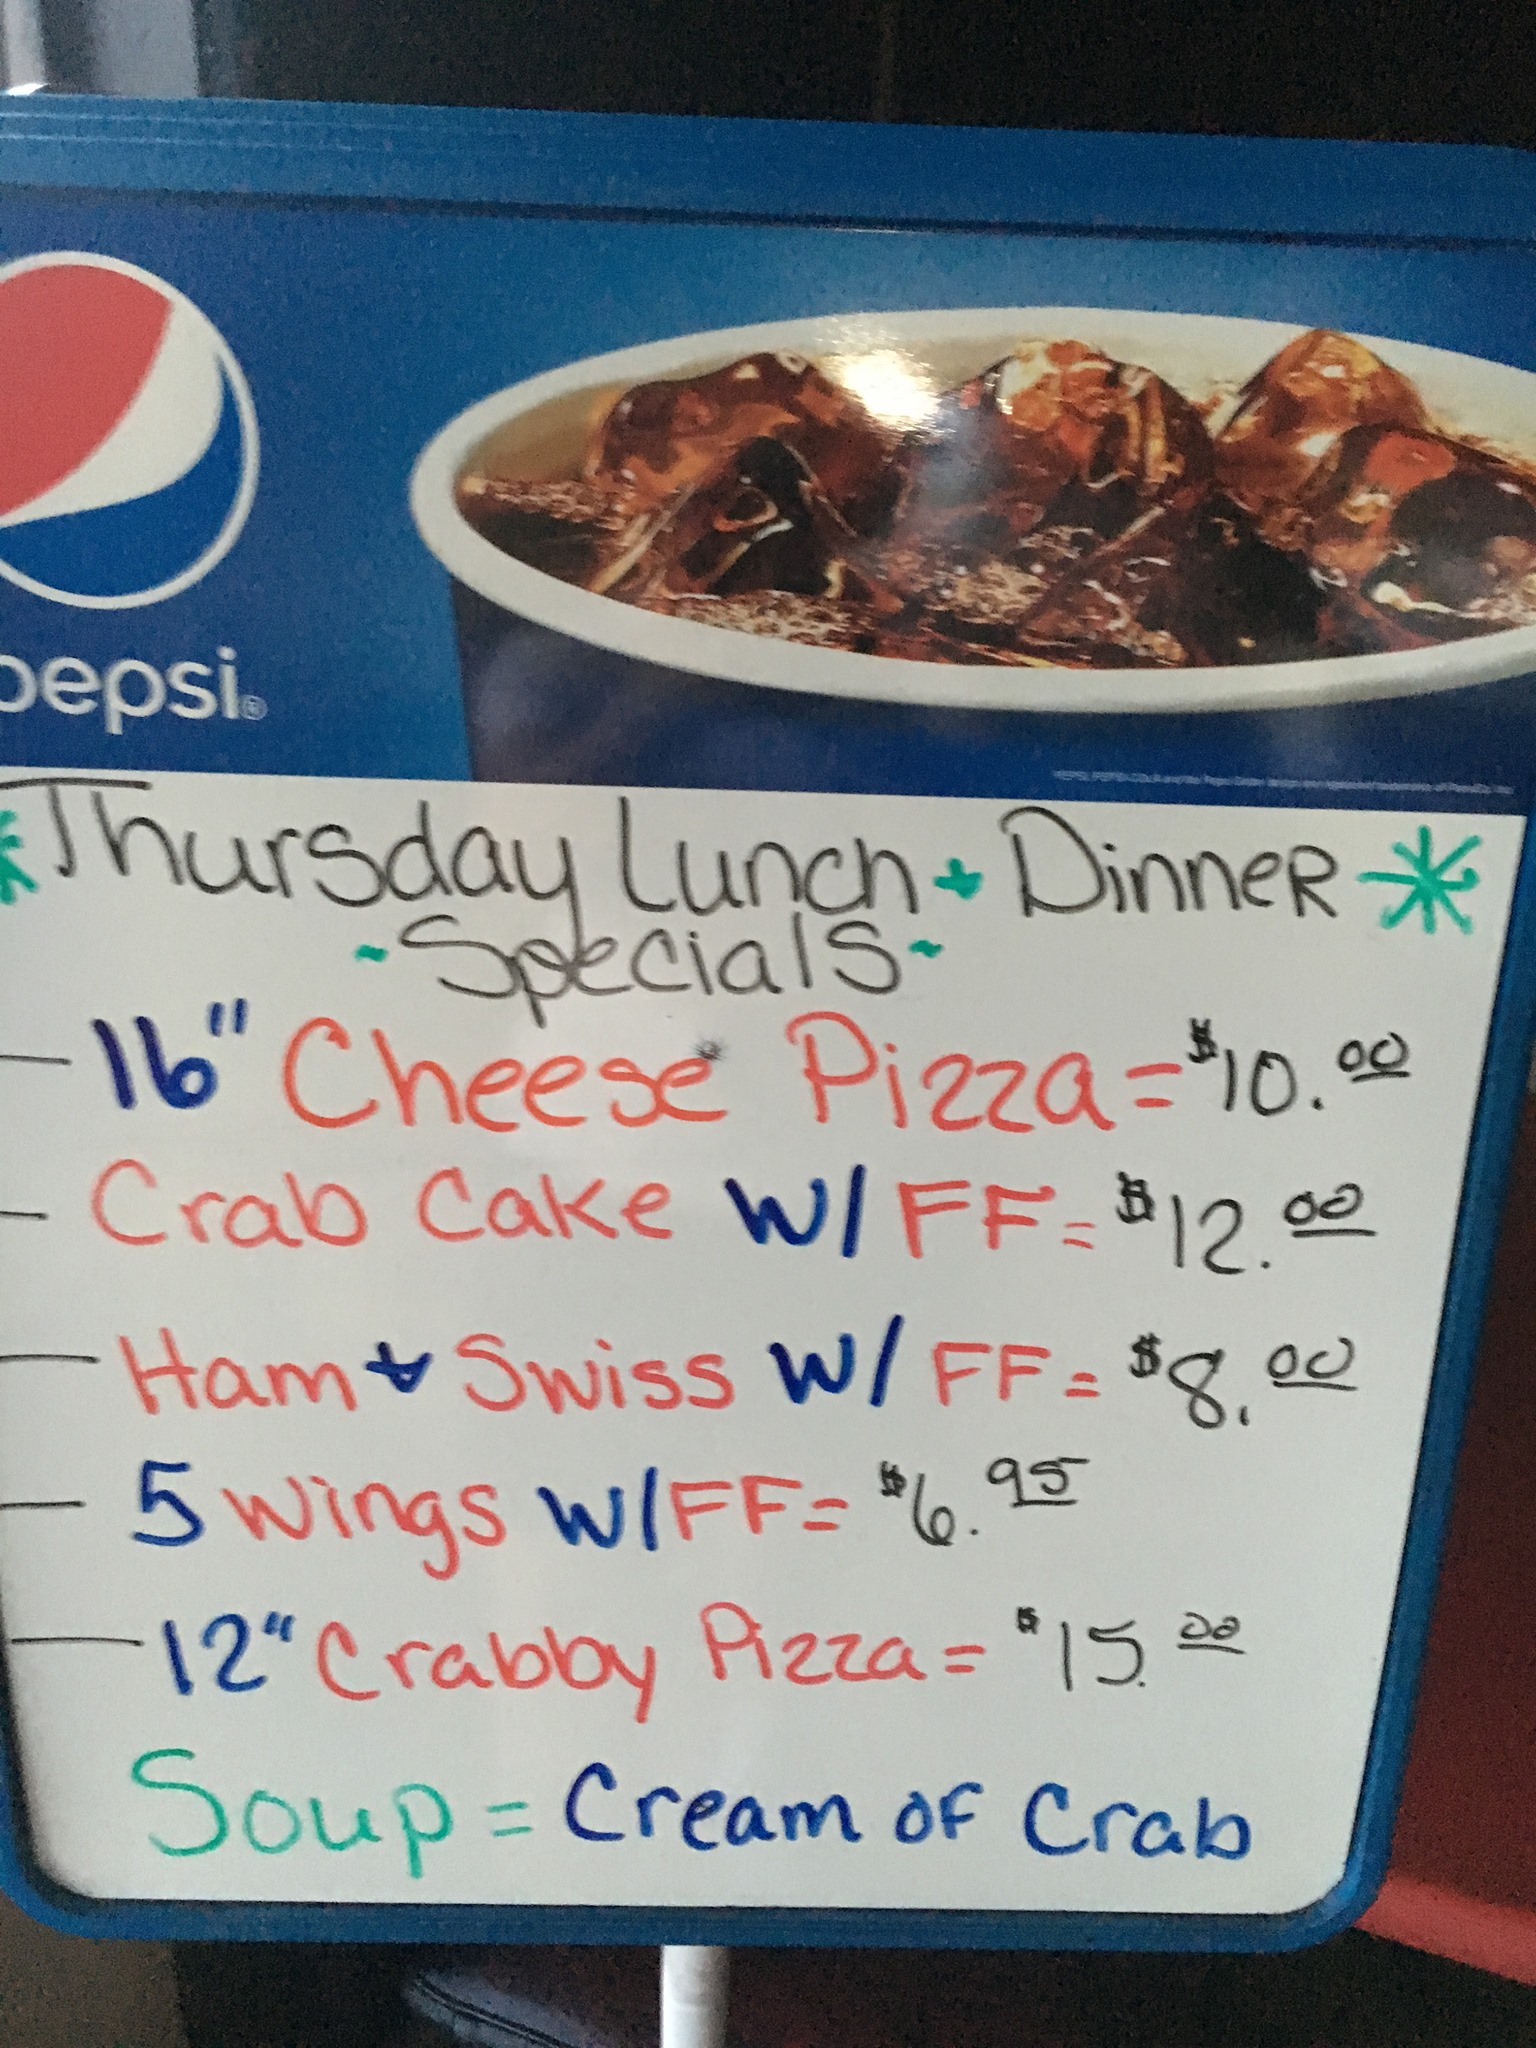 pepsi®
Thursday Lunch + Dinner
~Specials~
— 16" Cheese Pizza = $10.00
— Crab Cake W/ FF = $12.00
— Ham + Swiss W/ FF = $8.00
— 5 Wings W/ FF = $6.95
— 12" Crabby Pizza = $15.00
Soup = Cream of Crab